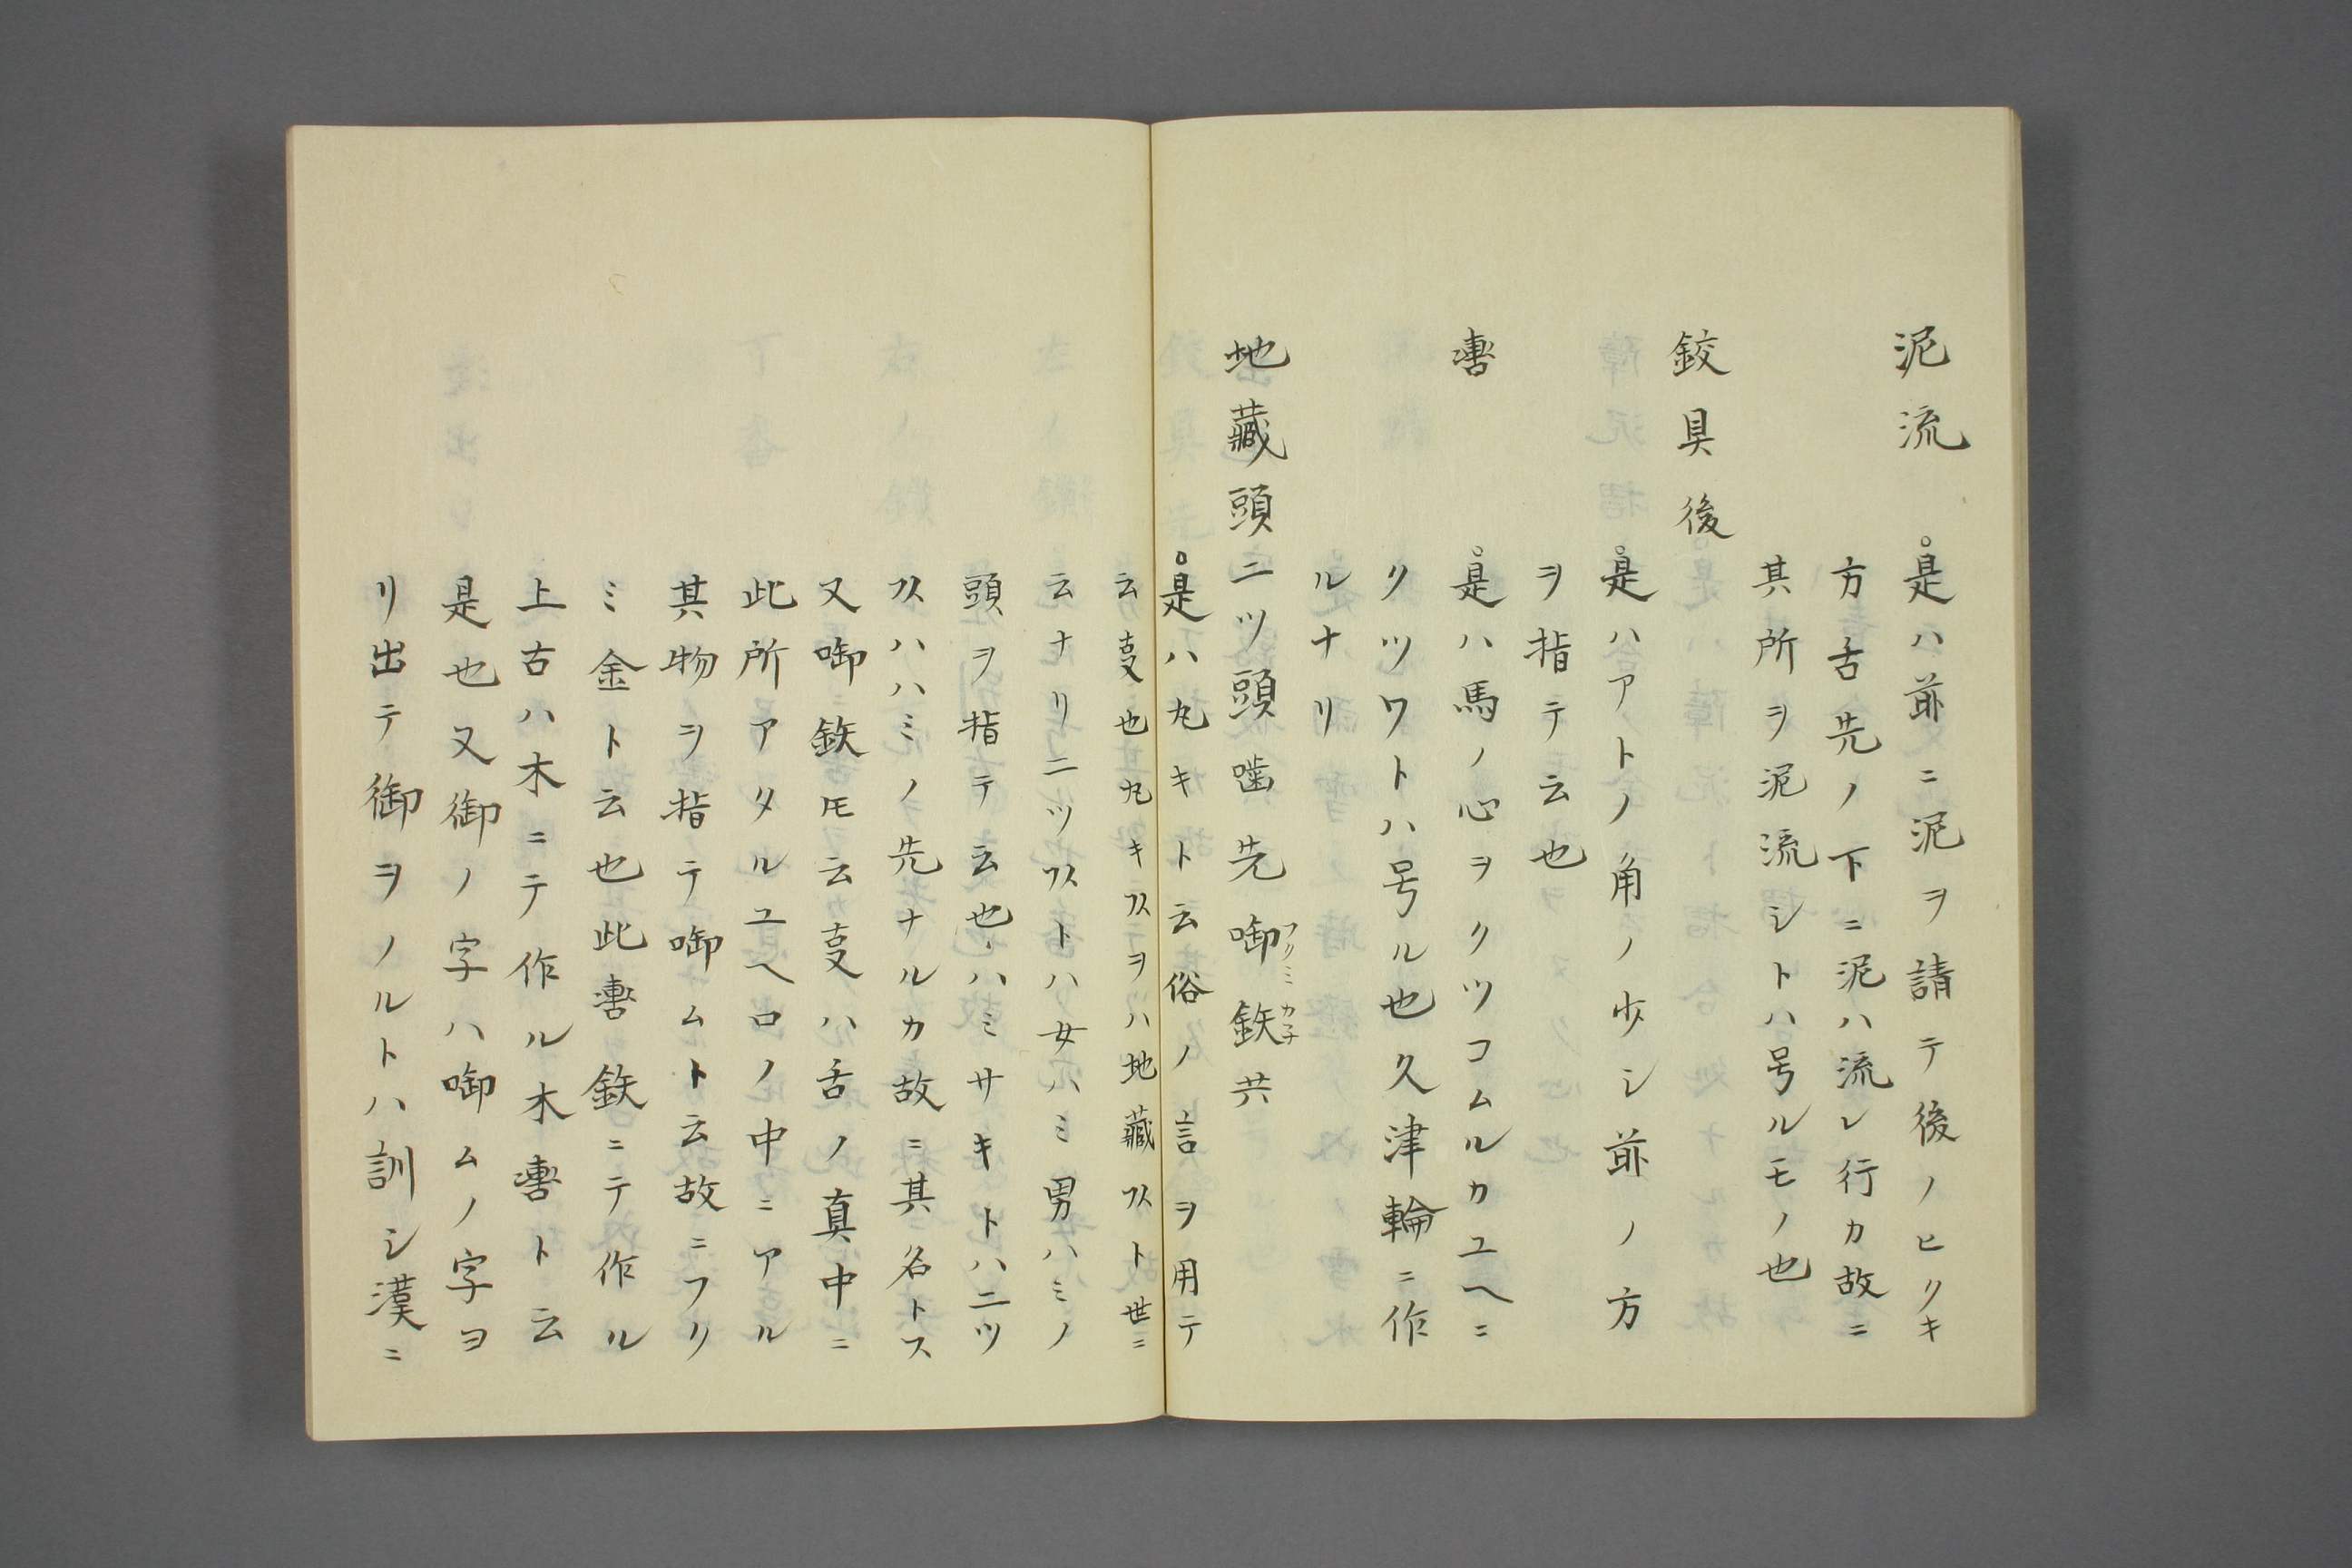 泥流
○是ハ前ニ泥ヲ請テ後ノヒクキ
方舌先ノ下ニ泥ハ流レ行カ故ニ
其所ヲ泥流シトハ号ルモノ也
鉸具後
○是ハアトノ角ノ少シ前ノ方
ヲ指テ云也
轡
○是ハ馬ノ心ヲクツコムルカユヘニ
クツワトハ号ル也久津輪ニ作
ルナリ
地藏頭二ツ頭噛先啣鉄共
フクミカ子
○是ハ丸キト云俗ノ言ヲ用テ
云叓也丸キヿヲハ地藏ヿト世ニ
云ナリ二ツヿトハ女ハミ男ハミノ
頭ヲ指テ云也ハミサキトハ二ツ
ヿハハミノ先ナルカ故ニ其名トス
又啣鉄ㇳモ云叓ハ舌ノ真中ニ
此所アタルユヘ口ノ中ニアル
其物ヲ指テ啣ムト云故ニフク
ミ金ト云也此轡鉄ニテ作ル
上古ハ木ニテ作ル木轡ト云
是也又御ノ字ハ啣ムノ字ヨ
リ出テ御ヲノルトハ訓シ漢ニ